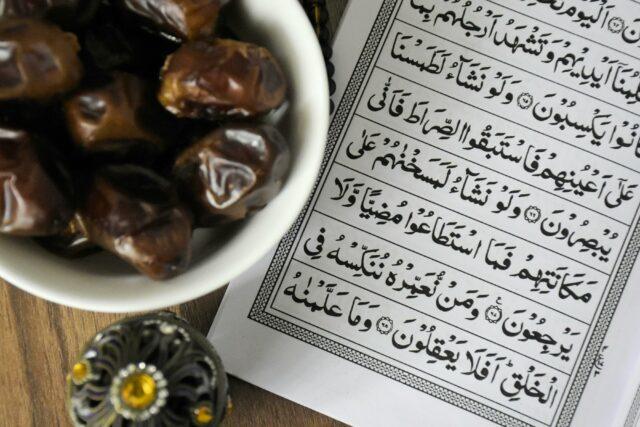 اَلْيَوْمَ
اَيْدِيْهِمْ وَتَشْهَدُ اَرْجُلُهُمْ بِمَا
كَانُوْا يَكْسِبُوْنَ ۝۶۵ وَلَوْ نَشَآءُ لَطَمَسْنَا
عَلٰٓى اَعْيُنِهِمْ فَاسْتَبَقُوا الصِّرَاطَ فَاَنّٰى
يُبْصِرُوْنَ ۝۶۶ وَلَوْ نَشَآءُ لَمَسَخْنٰهُمْ عَلٰى
مَكَانَتِهِمْ فَمَا اسْتَطَاعُوْا مُضِيًّا وَّلَا
يَرْجِعُوْنَ ۝۶۷ وَمَنْ نُّعَمِّرْهُ نُنَكِّسْهُ فِى
الْخَلْقِ ؕ اَفَلَا يَعْقِلُوْنَ ۝۶۸ وَمَا عَلَّمْنٰهُ